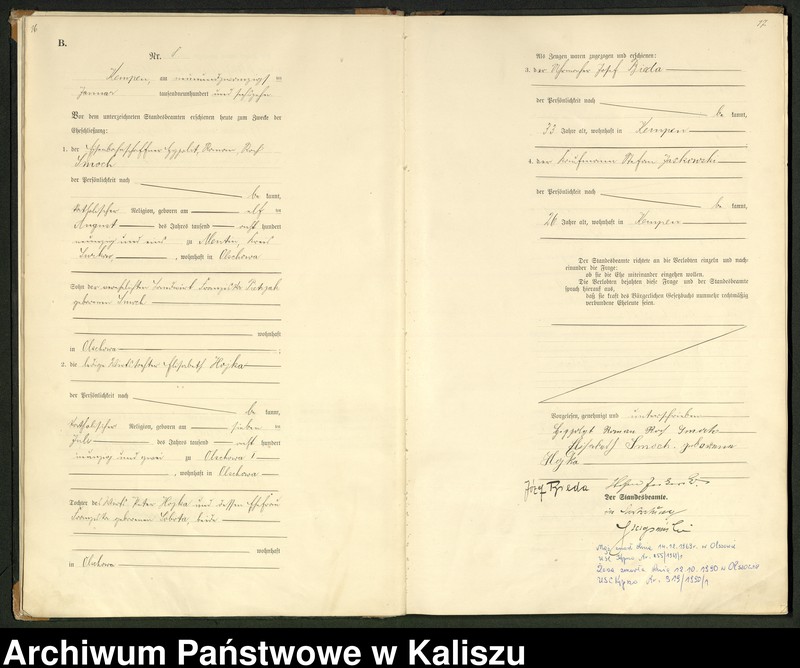 16
B.
Nr.
Kempen, am neunundzwanzigsten
Januar tausendneunhundert und sechzehn
Vor dem unterzeichneten Standesbeamten erschienen heute zum Zwecke der
Eheschließung:
1. der Eisenbahnschaffner Hypolit, Roman, Roch
Smoch
der Persönlichkeit nach
be kannt,
katholischer Religion, geboren am elf ten
August des Jahres tausend acht hundert
neunzig und eins zu Kreis
, wohnhaft in Olschowa
Sohn der Franziska
geborenen Smoch
wohnhaft
in Olschowa
2. die ledige Elisabeth Hojka
der Persönlichkeit nach
be kannt,
katholischer Religion, geboren am sieben ten
Juli des Jahres tausend acht hundert
neunzig und zwei zu Olschowa
, wohnhaft in Olschowa
Tochter des Peter Hojka und dessen Ehefrau
Franziska geborenen Sobota, beide
wohnhaft
in Olschowa
17
Als Zeugen waren zugezogen und erschienen:
3. der Schumacher Josef Breda
der Persönlichkeit nach
be kannt,
33 Jahre alt, wohnhaft in Kempen
4. der Kaufmann Stefan Jackowski
der Persönlichkeit nach
be kannt,
26 Jahre alt, wohnhaft in Kempen
Der Standesbeamte richtete an die Verlobten einzeln und nach-
einander die Frage:
ob sie die Ehe miteinander eingehen wollen.
Die Verlobten bejahten diese Frage und der Standesbeamte
sprach hierauf aus,
daß sie kraft des Bürgerlichen Gesetzbuchs nunmehr rechtmäßig
verbundene Eheleute seien.
Vorgelesen, genehmigt und unterschrieben
Hyppolyt Roman Roch Smoch
Elisabeth Smoch geborene
Hojka
Józef Breda
Der Standesbeamte.
in Vertretung
Mąż zmarł dnia w Olszowie
USC Kępno Nr.
Żona zmarła dnia 12.10.1990 w Olszowie
USC Kępno Nr. 319/1990/1
Archiwum Państwowe w Kaliszu